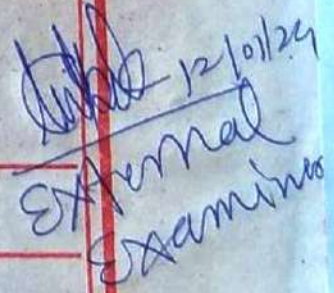 12/01/24
External
Examiner